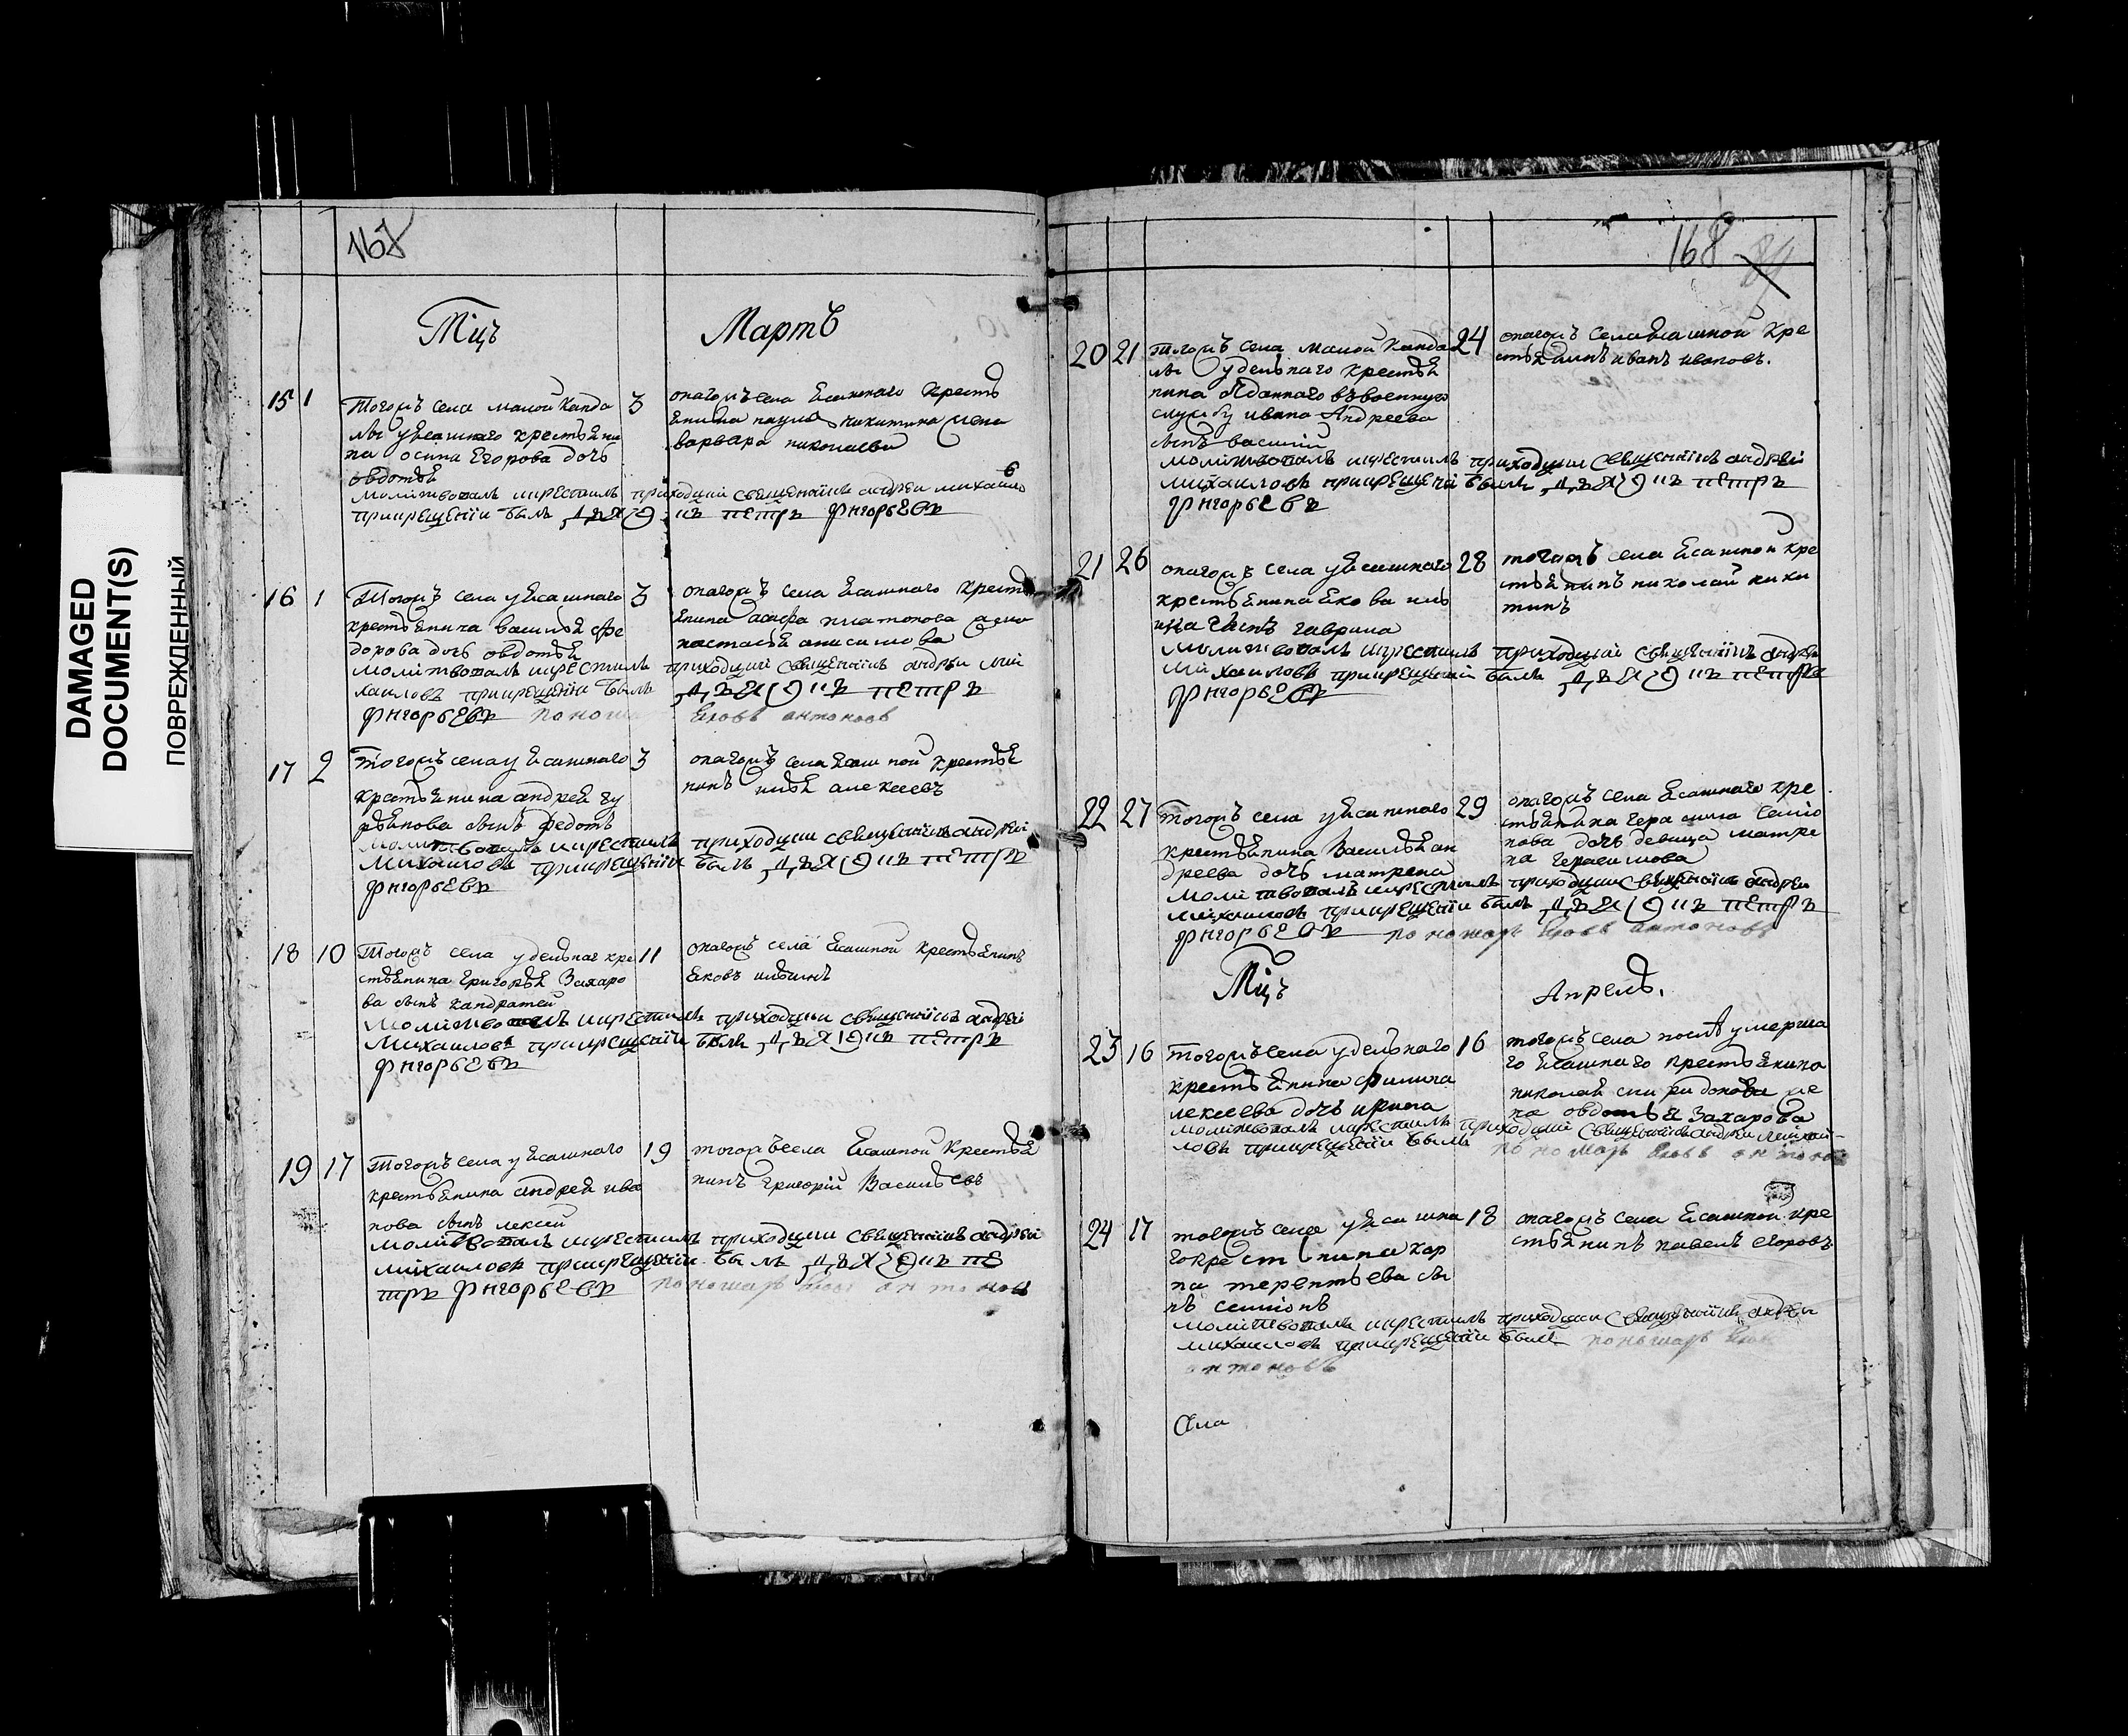 DAMAGED
DOCUMENT(S)
ПОВРЕЖДЕННЫЙ
167
Мцъ Мартъ
15 1
тогожъ села малой Канда
лы уясашнаго крестьяни
на осипа Егорова дочь
овдотья
3
онагожъ села Ясашнаго кресть
янина никитина жена
варвара николаева
молитвовалъ икрестилъ приходций священникъ андреи михаило
в
прикрещении былъ дьяконъ петръ григорьевъ
16 1
Тогожъ села уясашнаго
крестьянина василья фе
дорова дочь овдотья
3
онагожъ села Ясашнаго кресть
янина платонова жена
настасья анисимова
молитвовалъ икрестилъ приходций священникъ андреи ми
хаиловъ прикрещении былъ дьяконъ петръ
григорьевъ пономарь яковъ антоновъ
17 2
Тогожъ села уясашнаго
крестьянина андрея гу
рьянова сынъ федотъ
3
онагожъ села ясашной крестья
нинъ илья алексеевъ
молитвовалъ икрестилъ приходции священникъ андреи
михаиловъ прикрещении былъ дьяконъ петръ
григорьевъ
18 10
Тогожъ села удельнаг кре
стьянина григорья Захаро
ва сынъ кандратей
11
онагожъ села Ясашной крестьянинъ
яковъ ильинъ
молитвовалъ икрестилъ приходции священникъ андреи
михаиловъ прикрещении былъ дьяконъ петръ
григорьевъ
19 17
Тогожъ села уясашнаго
крестьянина андрея ива
нова сынъ лексей
19
тогожъ села Ясашной крестья
нинъ григорий Васильевъ
молитвовалъ икрестилъ приходции священникъ андреи
михаиловъ прикрещении былъ дьяконъ пе
тръ григорьевъ пономарь яковъ антоновъ
168
20 21
тогожъ села малой Канда
лы удельнаго крестья
нина отданнаго ввоенную
службу ивана Андреева
сынъ василий
24
онагожъ села Ясашной кре
стьянинъ иванъ ивановъ.
молитвовалъ икрестилъ приходции священникъ андреи
михаиловъ прикрещении былъ дьяконъ петръ
григорьевъ
21 26
онагожъ села уясашнаго
крестьянина якова иль
ина сынъ гаврила
28
тогожъ села Ясашной кре
стьянинъ николай ники
тинъ
молитвовалъ икрестилъ приходций священникъ андреи
михаиловъ прикрещении былъ дьяконъ петръ
григорьевъ
22 27
Тогожъ села уясашнаго
крестьянина Василья ан
дреева дочь матрена
29
онагожъ села Ясашнаго кре
стьянина герасима семио
нова дочь девица матре
на герасимова
молитвовалъ икрестилъ приходции священникъ андреи
михаиловъ прикрещении былъ дьяконъ петръ
григорьевъ пономарь яковъ антоновъ
Мцъ Апрель.
23 16
тогожъ села удельнаго
крестьянина филипа
лексеева дочь ирина
16
тогожъ села послѣ умерша
го Ясашнаго крестьянина
николая спиридонова же
на овдотья Захарова
молитвовалъ икрестилъ приходций священникъ андреи михаи-
ловъ прикрещении былъ пономарь яковъ антонов
24 17
тогожъ села уясашна
го крестьянина кар
па терентьева сы
нъ семионъ
18
онагожъ села Ясашной кре
стьянинъ павелъ егоровъ
молитвовалъ икрестилъ приходции священникъ андреи
михаиловъ прикрещении былъ пономарь яков
антоновъ
Села